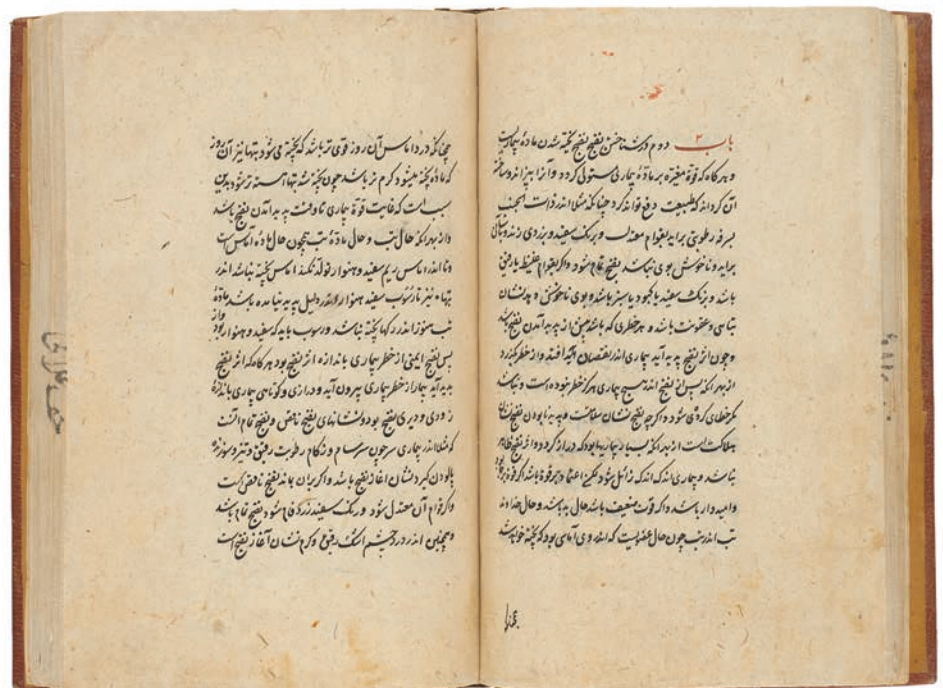 باب ۲ دوم در شناختن نضج نضج پخته شدن مادهٔ بیماریست
و هرگاه که قوة مغیره بر مادهٔ بیماری مستولی گردد و آنرا بپزاند و ساخته
آن گرداند که طبیعت دفع تواند کرد چنانکه مثلا اندر ذات الجنب
بسرفه رطوبتی براید بقوام معتدل و برنک سفید و بزردی زند و باسانی
براید و ناخوش بوی نباشد نضج تمام شود و اگر بقوام غلیظ یا رقیق
باشد و برنک سفید یا کبود یا سبز باشد و بوی ناخوش و بد نشان
تباهی و عفونت باشد و هر خطری که باشد پیش از پدید آمدن نضج باشد
و چون اثر نضج پدید آید بیماری اندر نقصان افتد و از خطر بگذرد
از بهر آنکه پس از نضج اندر هیچ بیماری هرگز خطر نبوده است و نباشد
مگر خطای کرده شود و اگرچه نضج نشان سلامت و پدید نابودن نضج نشان
هلاکت است از بهر آنکه بسیار بیماریها بود که دراز گردد و اثر نضج ظاهر
نباشد و بیماری اندک اندک زائل شود لکن اعتماد بر قوة باشد اگر قوة بر جا بود
و امیدوار باشد و اگر قوت ضعیف باشد حال بد باشد و حال خداوند
تب اندر تب چون حال عضویست که اندر وی آماسی بود که پخته خواهد شد
چنانکه درد اماس آن روز قوی تر باشد که پخته می شود تبها نیز آن روز
که ماده پخته میشود گرم تر باشد چون پخته شد تبها آهسته تر شود بدین
سبب است که غایت قوة بیماری تا وقت پدید آمدن نضج باشد
و از بهر آنکه حال تب و حال مادهٔ تب همچون حال مادهٔ اماس است
و تا اندر اماس ریم سفید و هموار تولد نکند اماس پخته نباشد اندر
تبها نیز تا رسوب سفید هموار اندر دلیل پدید نیامده باشد مادهٔ
تب هنوز اندر رکها پخته نباشد و رسوب باید که سفید و هموار بود
پس نضج ایمنی از خطر بیماری باندازه اثر نضج بود هرگاه که اثر نضج
پدید آید بیمار از خطر بیماری بیرون آید و درازی و کوتاهی بیماری باندازهٔ
زودی و دیری نضج بود و نشانهای نضج ناقص و نضج تمام آنست
که مثلا اندر بیماری سر چون سرسام و زکام رطوبت رقیق و تیز و سوزنده
پالودن گیرد نشان آغاز نضج باشد و اگر بران بماند نضج ناقص است
و اگر قوام آن معتدل شود و رنک سفید زرد فام شود نضج تمام باشد
و همچنین اندر درد چشم اشک رقیق و گرم نشان آغاز نضج است